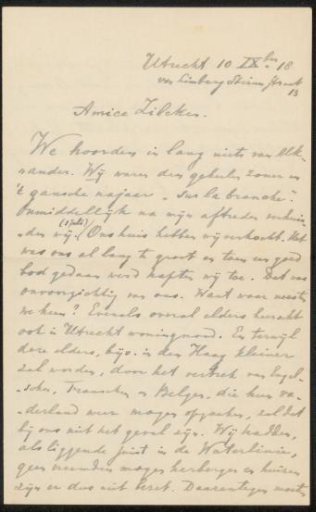 Utrecht 10 IXbr 18
van Limburg Stirum straat
13
Amice Zilcken.
We hoorden in lang niets van elk-
ander. Wij waren den geheelen zomer en
't gansche najaar "sur la branche".
Onmiddellijk na mijn aftreden
(1 Juli)
wij. Ons huis hebben wij verkocht. Het
was ons al lang te groot en toen een goed
bod gedaan werd hapten wij toe. Dat was
onvoorzichtig van ons. Want waar moesten
we heen? Evenals overal elders heerscht
ook in Utrecht woningnood. En terwijl
deze elders, bijv. in den Haag kleiner
zal worden, door het vertrek van Engel-
schen, Franschen en Belgen, die hun va-
derland weer mogen opzoeken, zal dat
bij ons niet het geval zijn. Wij hadden,
als liggende juist in de Waterlinie,
geen vreemden mogen herbergen en huizen
zijn er dus niet bezet. Daarentegen moeten